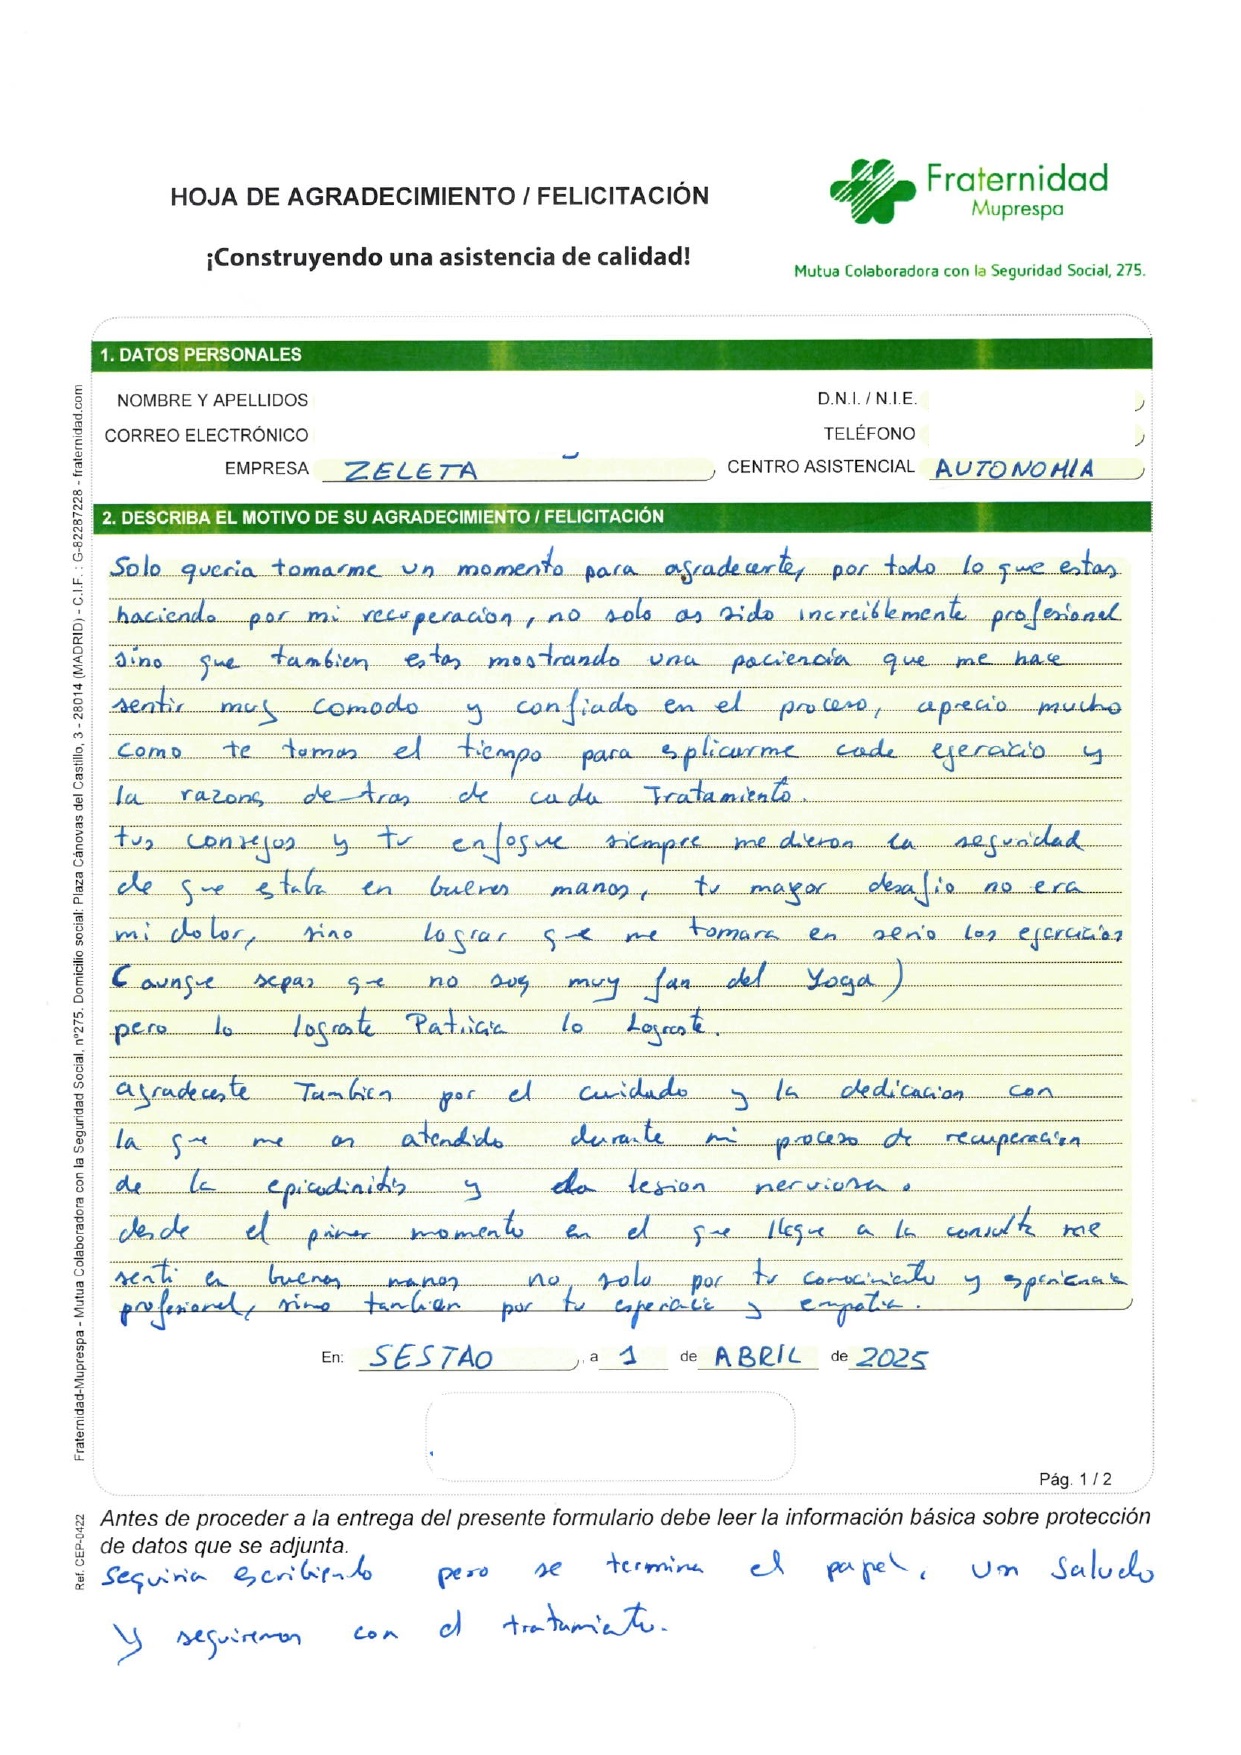 HOJA DE AGRADECIMIENTO / FELICITACIÓN
¡Construyendo una asistencia de calidad!
Fraternidad
Muprespa
Mutua Colaboradora con la Seguridad Social, 275.
1. DATOS PERSONALES
NOMBRE Y APELLIDOS
D.N.I. / N.I.E.
CORREO ELECTRÓNICO
TELÉFONO
EMPRESA ZELETA
CENTRO ASISTENCIAL AUTONOMIA
2. DESCRIBA EL MOTIVO DE SU AGRADECIMIENTO / FELICITACIÓN
Solo queria tomarme un momento para agradecerte, por todo lo que estas
haciendo por mi recuperacion, no solo as sido increiblemente profesional
sino que tambien estas mostrando una paciencia que me hace
sentir muy comodo y confiado en el proceso, aprecio mucho
como te tomas el tiempo para esplicarme cada ejercicio y
la razons de tras de cada Tratamiento.
tus consejos y tu enfoque siempre me dieron la seguridad
de que estaba en buenos manos, tu mayor desafio no era
mi dolor, sino lograr que me tomara en serio los ejercicios
(aunque sepas que no soy muy fan del Yoga)
pero lo lograste Patricia lo Lograste.
agradecerte Tambien por el cuidado y la dedicacion con
la que me as atendido durante mi proceso de recuperacion
de la epicodinitis y la lesion nerviosa.
desde el primer momento en el que llegue a la consulta me
senti en buenas manos no solo por tu conocimiento y esperiencia
profesional, sino tambien por tu esperiencia y empatia.
En: SESTAO, a 1 de ABRIL de 2025
Pág. 1 / 2
Antes de proceder a la entrega del presente formulario debe leer la información básica sobre protección
de datos que se adjunta.
seguiria escribiendo pero se termina el papel. un saludo
y seguiremos con el tratamiento.
Fraternidad-Muprespa - Mutua Colaboradora con la Seguridad Social, nº275. Domicilio social: Plaza Cánovas del Castillo, 3 - 28014 (MADRID) - C.I.F. : G-82287228 - fraternidad.com
Ref. CEP-0422